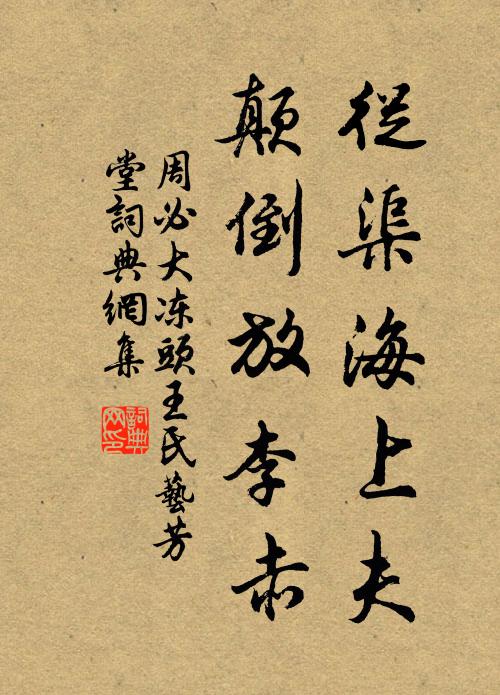 從渠海上夫
顛倒放李赤
周必大凍頭王氏藝芳
堂詞典網集
詞典
网印